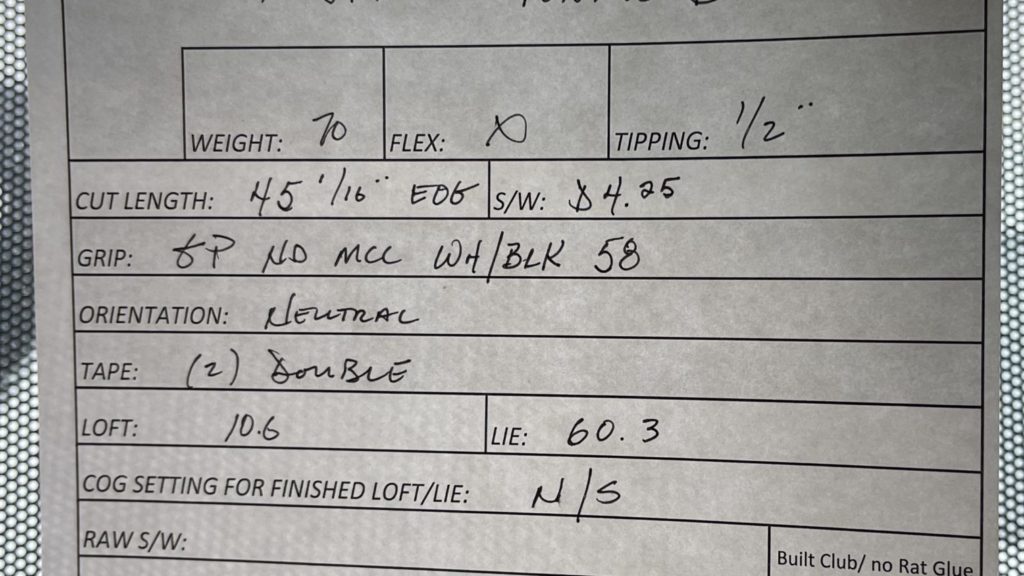 WEIGHT: 70 FLEX: X TIPPING: 1/2"
CUT LENGTH: 45 1/16" EOG S/W: D4.25
GRIP: GP ND MCC WH/BLK 58
ORIENTATION: NEUTRAL
TAPE: (2) DOUBLE
LOFT: 10.6 LIE: 60.3
COG SETTING FOR FINISHED LOFT/LIE: N/S
RAW S/W:
Built Club/ no Rat Glue